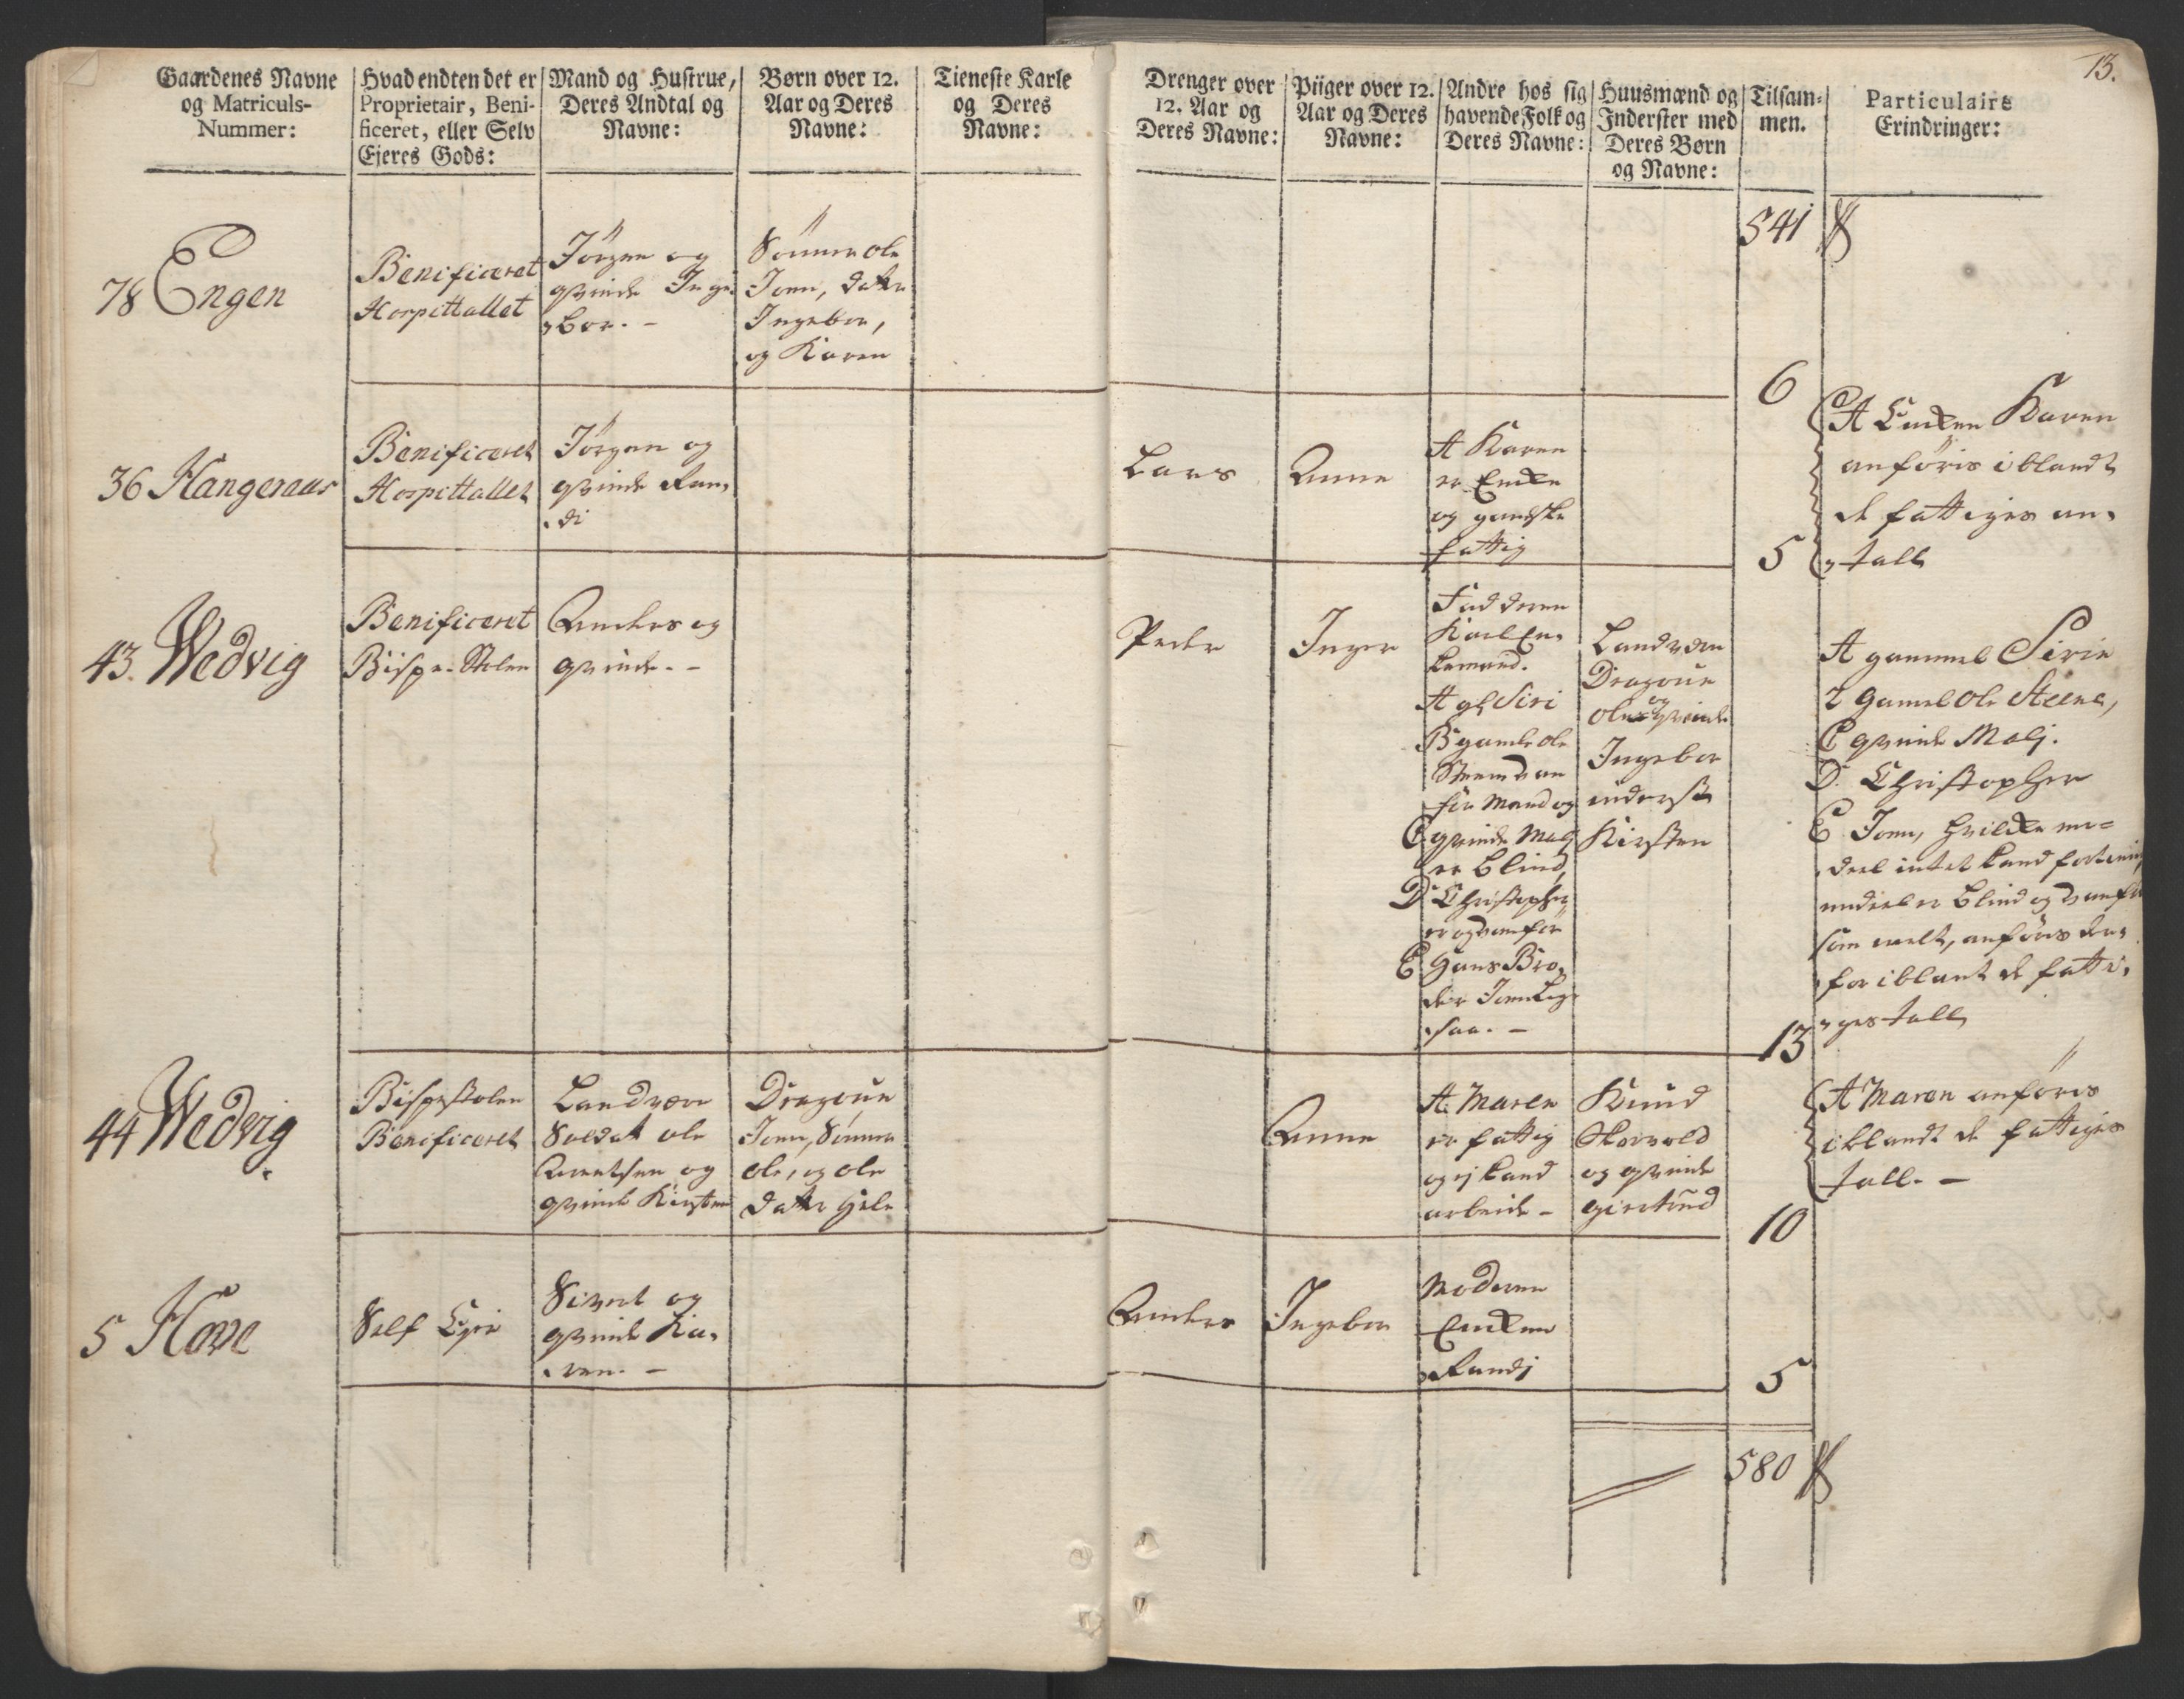 13.
Gaardenes Navne
og Matriculs-
Nummer:
Hvad endten det er
Proprietair, Beni-
ficeret, eller Selv
Ejeres Gods:
Mand og Hustrue,
Deres Andtal og
Navne:
Børn over 12.
Aar og Deres
Navne:
Tieneste Karle
og Deres
Navne:
Drenger over
12. Aar og
Deres Navne:
Piiger over 12.
Aar og Deres
Navne:
Andre hos sig
havende Folk og
Deres Navne:
Huusmænd og
Inderster med
Deres Børn
og Navne:
Tilsam-
men.
Particulaire
Erindringer:
541
78 Engen
Benificeret
Hospittallet
Jörgen og
qvinde Inge
bor. -
Sönner ole
Jonn, datter
Ingebor,
og Karen
6
36 Hangeraas
Benificeret
Hospittallet
Jörgen og
qvinde Ran,
di
Lars
Anne
A Karen
er Encke
og gandske
fattig
5
A Encken Karen
anföris iblandt
de fattiges an,
tall
43. Wedvig
Benificeret
Bispe-Stolen
Anders og
qvinde. -
Peder
Inger
Fadderen
Karl En,
kemand.
A gl Siri
B gamle ole
Steen van
för Mand og
C qvinde Malj
er blind,
D Christopher
er og vanför
E Hans Bro,
der Jonn Lige
saa. -
Landværn
Dragoun
ole og qvinde
Ingebor
inderst
Kirsten
13
A gammel Sirie
2 gamel ole Steene,
C qvinde Malj.
D. Christopher
E Jonn, hvilcke en=
deel intet kand fortienne
endeel er blind og vanför
som melt, anföris der,
for iblant de fatti,
ges tall
44 Wedvig
Bispestolen
Benificeret
Landværn
Soldat ole
Arentsen og
qvinde Kirsten
Dragoun
Jonn, Sönner
ole, og ole
datter Gele
Anne
A. Maren
er fattig
og ej kand
arbeide -
Knud
Skorvold
og qvinde
giertrud
10
A Maren anföris
iblandt de fattiges
tall. -
5 Hove
Self Ejer
Sivert og
qvinde Ka,
ren. -
Anders
Ingebor
Moderen
Encken
Randj
5
580